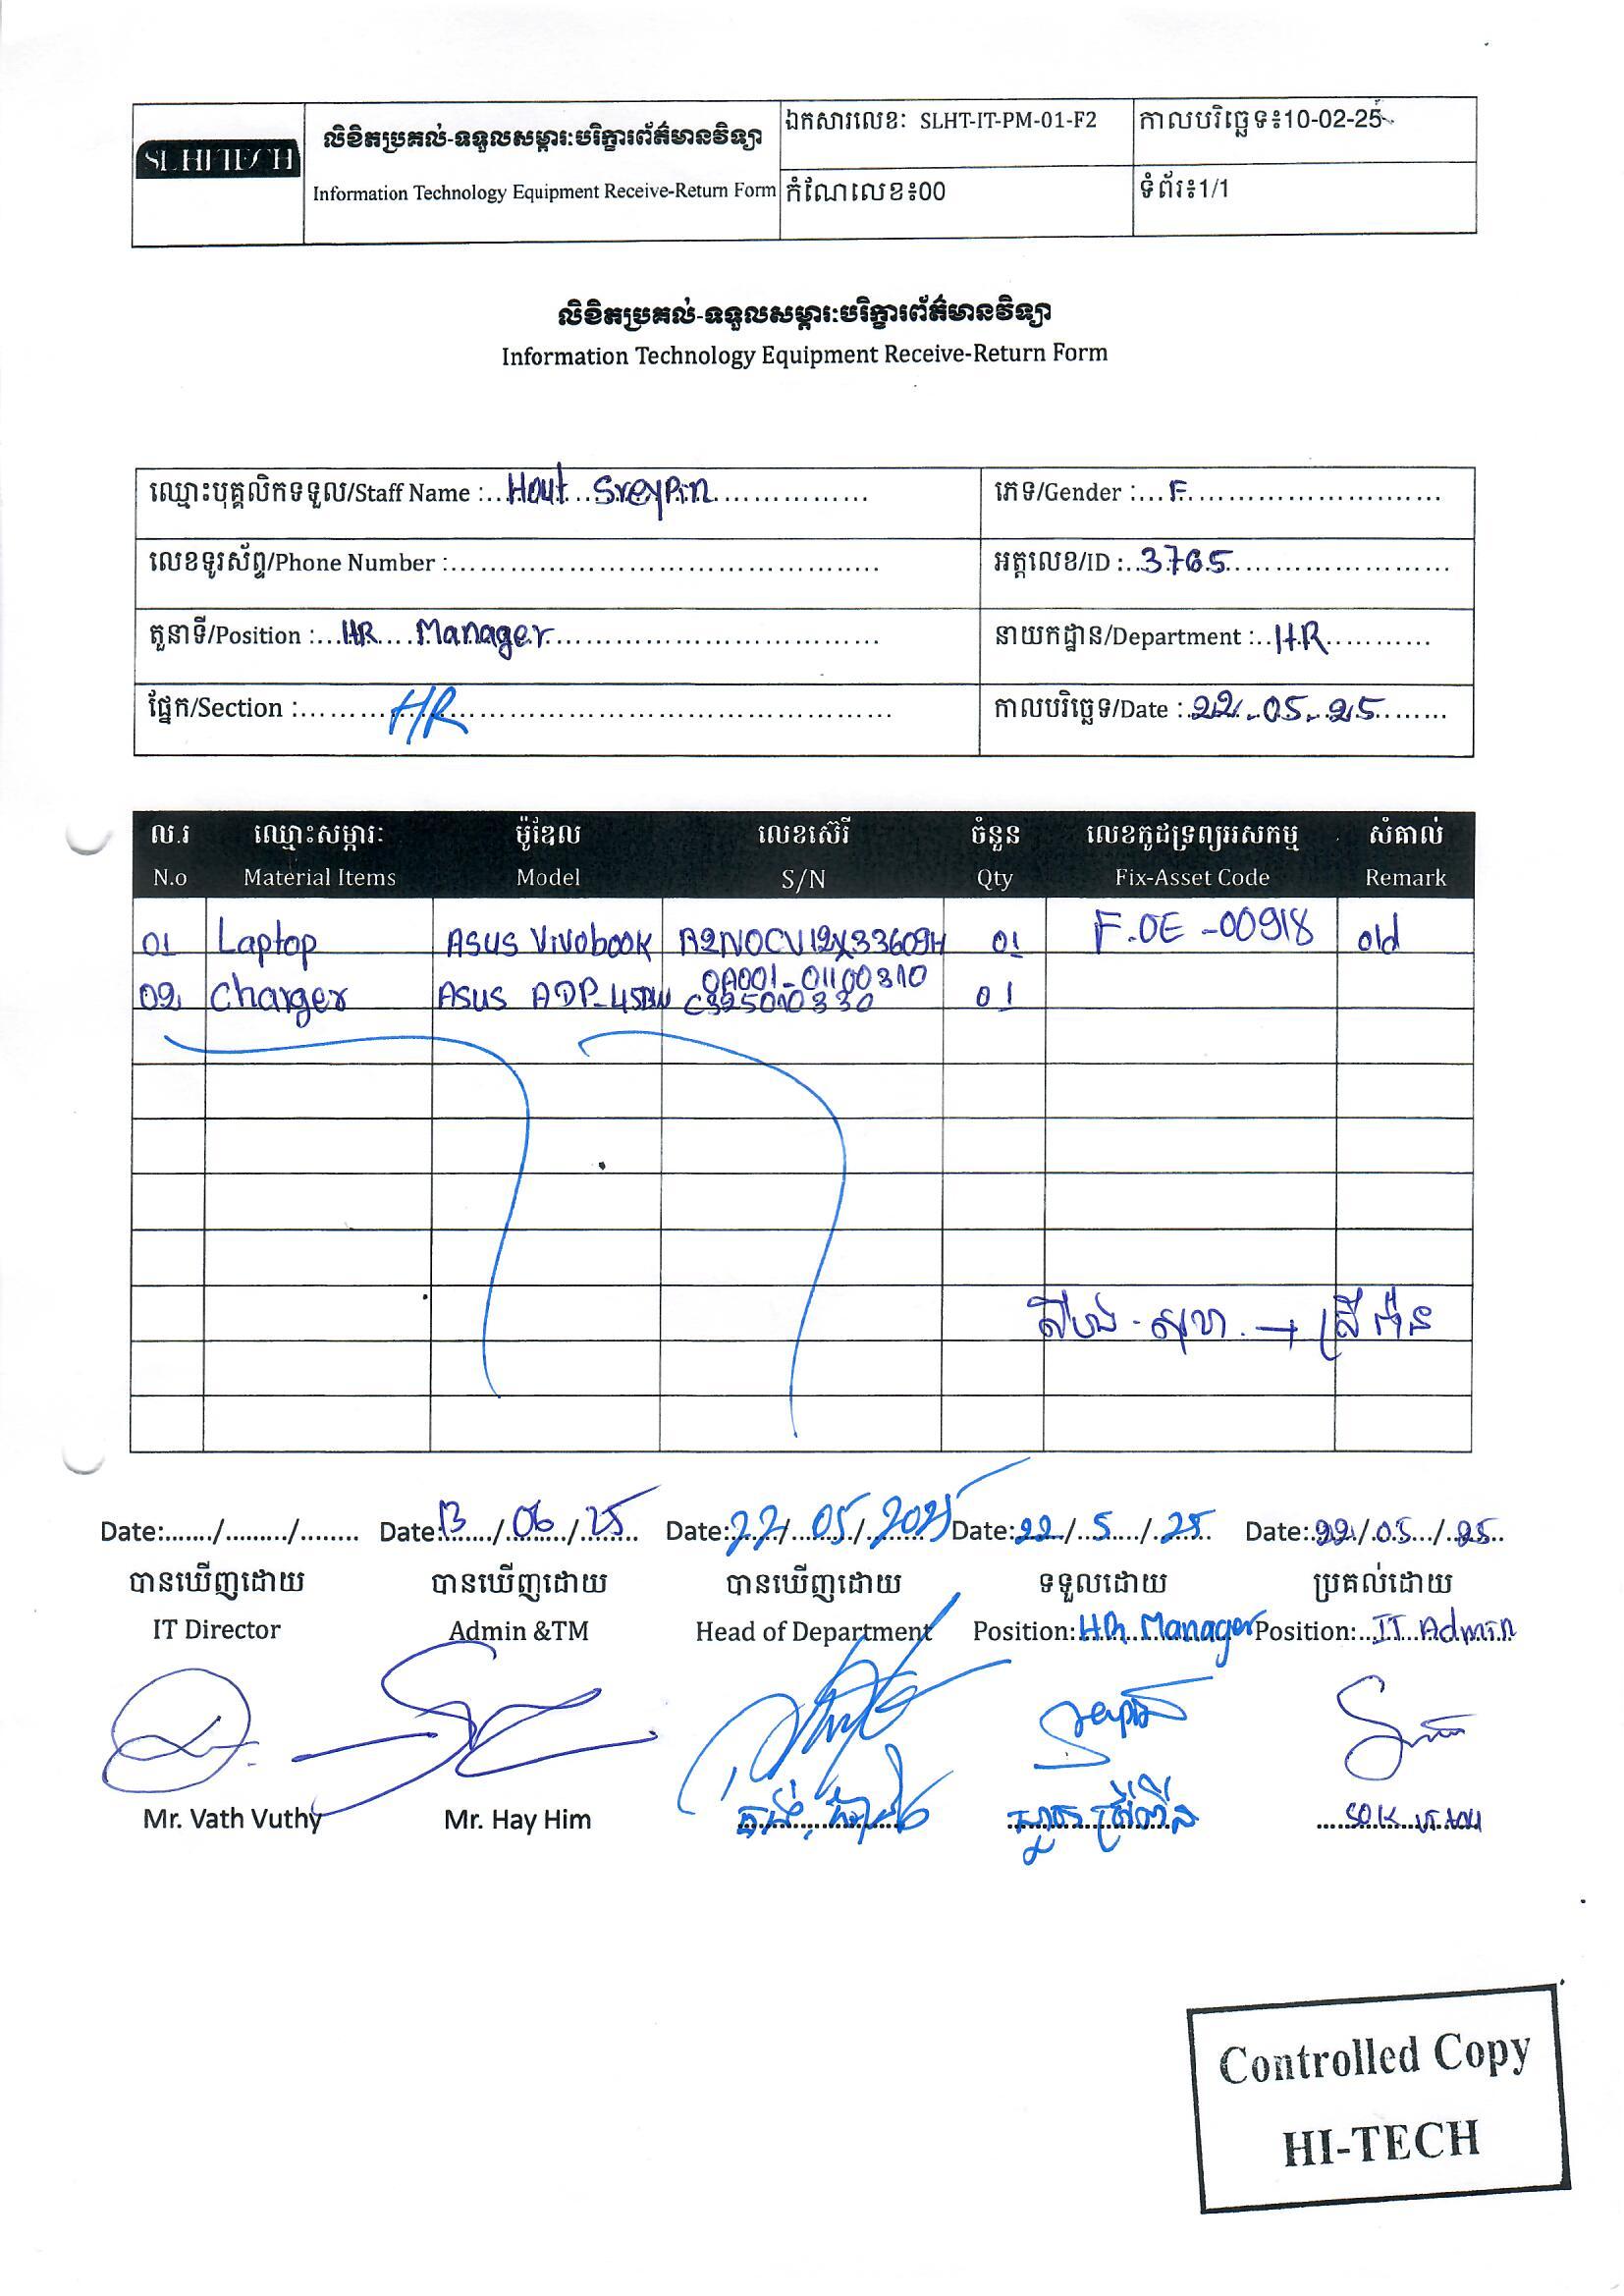 SLHITECH
លិខិតប្រគល់-ទទួលសម្ភារៈបរិក្ខារព័ត៌មានវិទ្យា
Information Technology Equipment Receive-Return Form
ឯកសារលេខៈ SLHT-IT-PM-01-F2
កាលបរិច្ឆេទ៖10-02-25
កំណែលេខ៖00
ទំព័រ៖1/1
លិខិតប្រគល់-ទទួលសម្ភារៈបរិក្ខារព័ត៌មានវិទ្យា
Information Technology Equipment Receive-Return Form
ឈ្មោះបុគ្គលិកទទួល/Staff Name : Hout SreyPin
ភេទ/Gender : F
លេខទូរស័ព្ទ/Phone Number :
អត្តលេខ/ID : 3765
តួនាទី/Position : HR Manager
នាយកដ្ឋាន/Department : HR
ផ្នែក/Section : HR
កាលបរិច្ឆេទ/Date : 22.05.25
ល.រ ឈ្មោះសម្ភារៈ ម៉ូឌែល លេខស៊េរី ចំនួន លេខកូដទ្រព្យអសកម្ម សំគាល់
N.o Material Items Model S/N Qty Fix-Asset Code Remark
01 Laptop ASUS Vivobook R2N0CV12X33609H 01 F.OE-00918 old
02 Charger ASUS ADP-45BW 0A001-01100310 C325010330 01
Date:......./........./........ Date: 13/06/25 Date: 22/05/2025 Date: 22/5/25 Date: 22/05/25
បានឃើញដោយ បានឃើញដោយ បានឃើញដោយ ទទួលដោយ ប្រគល់ដោយ
IT Director Admin &TM Head of Department Position: HR Manager Position: IT Admin
Mr. Vath Vuthy Mr. Hay Him
Controlled Copy
HI-TECH